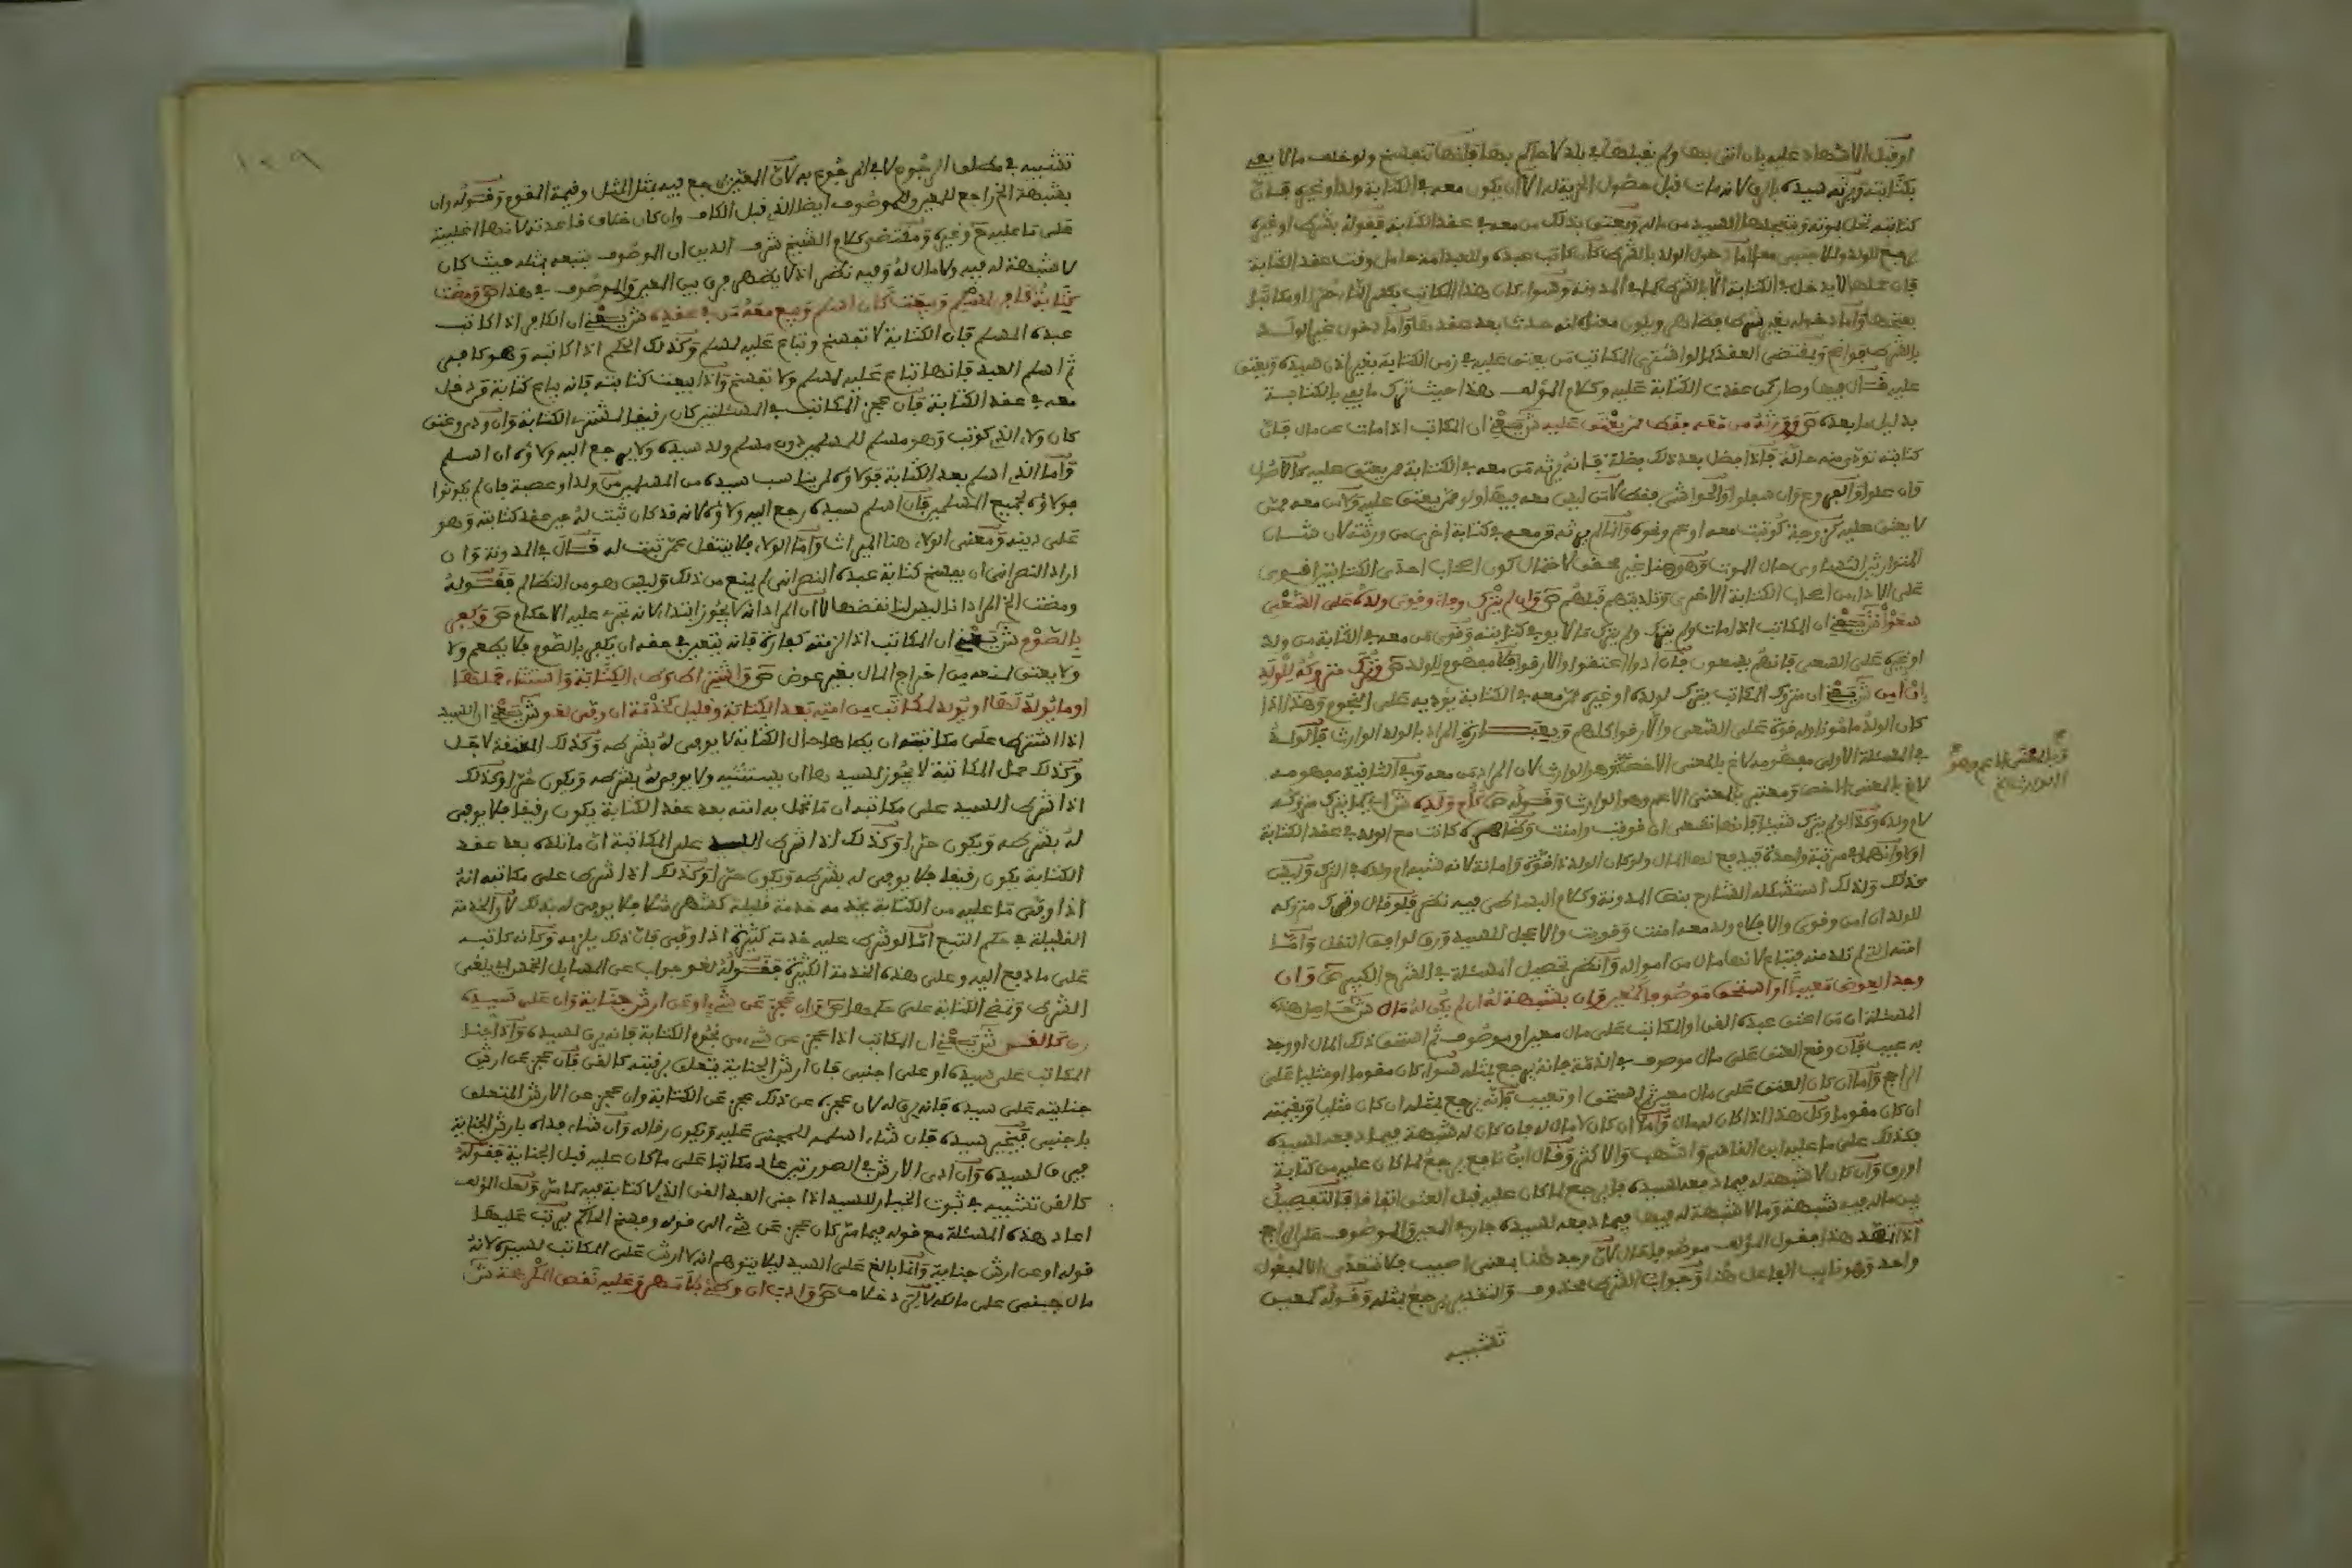 او قبل الاشهاد عليه بان اتى بها ولم يقبلها في بلد لا حاكم بها فانها تنفسخ ولو خلف ما لا يفي
بكتابته ويرثه سيده بالرق لانه مات قبل حصول الحرية له الا ان يكون معه في الكتابة ولد او غيره فان
كتابته تحل بموته ويتعجلها السيد من ماله ويعتق بذلك من معه في عقد الكتابة فقوله بشرط او غيره
يرجع للولد وللاجنبي معا اما دخول الولد بالشرط كان كاتب عبده وللعبد امة حامل وقت عقد الكتابة
فان حملها لا يدخل في الكتابة الا بالشرط كما في المدونة وسواء كان هذا الكاتب
بعضها واما دخوله بغير شرط فظاهر ويكون معناه انه حدث بعد عقدها واما دخول غير الولد
بالشرط فواضح وبمقتضى العقد كما لو اشترى المكاتب من يعتق عليه في زمن الكتابة بغير اذن سيده ويعتق
عليه قال فيها وصار كمن عقدت الكتابة عليه وكلام المؤلف هذا حيث ترك ما يفي بالكتابة
بدليل ما بعده ص وورثه من معه فقط ممن يعتق عليه ش يعني ان المكاتب اذا مات عن مال فان
كتابته تؤدى منه حالة فاذا فضل بعد ذلك فضلة فانه يرثه من معه في الكتابة ممن يعتق عليه كالاصول
وان علوا والفروع وان سفلوا والحواشي فقط لا من ليس معه فيها ولو ممن يعتق عليه ولا من معه ممن
لا يعتق عليه كزوجة كوتبت معه او عم ونحوه وانما لم يرثه قريبه في كتابة اخرى من ورثته لان شان
المتوارثين التساوي حال الموت وهو هنا غير محقق لاحتمال كون اصحاب احدى الكتابتين اقوى
على الاداء من اصحاب الكتابة الاخرى وتاديتهم قبلهم ص وان لم يترك وفاء وقوي ولده على السعي
سعوا ش يعني ان المكاتب اذا مات ولم يترك ولم يترك مالا يوفي كتابته وقوي من معه في الكتابة من ولد
او غيره على السعي فانهم يسعون فان ادوا عتقوا والا رقوا فلا مفهوم للولد ص وترك متروكه للولد
ان امن ش يعني ان متروك المكاتب يترك لولده او غيره ممن معه في الكتابة يؤديه على النجوم وهذا اذا
كان الولد مامونا وله قوة على السعي والا رقوا كلهم وبعبارة المراد بالولد الوارث فالولد
في المسئلة الاولى مفهومه لاغ بالمعنى الاخص وهو الوارث لان المراد من معه وفي الثانية مفهومه
لاغ بالمعنى الاخص ومعتبر بالمعنى الاعم وهو الوارث وقوله ص كام ولده ش اي كما يترك متروكه
لام ولده وكذا لو لم يترك شيئا فانها تسعى ان قويت وامنت وظاهره كانت مع الولد في عقد الكتابة
او لا وانهما في مرتبة واحدة فيدفع لها المال ولو كان الولد ذا قوة وامانة لانه شبه ام ولده في الترك وليس
كذلك ولذلك استشكله الشارح بنص المدونة وكلام البساطي فيه نظر فلو قال وترك متروكه
للولد ان امن وقوي والا فلام ولد معه امنت وقويت والا عجل للسيد ورق لواجب النقل واما
امته التي لم تلد منه فتباع لانها مال من امواله وانظر تحصيل المسئلة في الشرح الكبير ص وان
وجد العوض معيبا او استحق موصوفا كمعين وان بشبهة له ان لم يكن له مال ش حاصل هذه
المسئلة ان من اعتق عبده القن او المكاتب على مال معين او موصوف ثم استحق ذلك المال او وجد
به عيب فان وقع العتق على مال موصوف في الذمة فانه يرجع بمثله سواء كان مقوما او مثليا على
الراجح واما ان كان العتق على مال معين ثم استحق او تعيب فانه يرجع بمثله ان كان مثليا وبقيمته
ان كان مقوما وكل هذا اذا كان له مال واما ان كان لا مال له فان كان له شبهة فيما دفعه لسيده
فكذلك على ما عليه ابن القاسم واشهب والاكثر وقال ابن نافع يرجع لما كان عليه من كتابة
او رق وان كان لا شبهة له فيما دفعه لسيده فانه يرجع لما كان عليه قبل العتق اتفاقا فالتفصيل
بين ما له فيه شبهة وما لا شبهة له فيها فيما دفعه لسيده جار في المعين والموصوف على الراجح
اذا تقرر هذا فقول المؤلف موصوفا حال لان وجد هنا بمعنى اصيب فلا تتعدى الا لمفعول
واحد وهو نايب الفاعل هنا وجواب الشرط محذوف والتقدير يرجع بمثله وقوله كمعين
تشبيه
وبالمعنى الاعم وهو
الوارث لاغ
تشبيه في مطلق الرجوع لا في المرجوع به لان المعين يرجع فيه بمثل المثلي وقيمة المقوم وقوله وان
بشبهة الخ راجع للمعين وللموصوف ايضا الذي قبل الكاف وان كان خلاف قاعدته لانها اغلبية
على ما عليه ح وغيره ومقتضى كلام الشيخ شرف الدين ان الموصوف يتبعه بمثله حيث كان
لا شبهة له فيه ولا مال له وفيه نظر اذ لا يظهر فرق بين المعين والموصوف في هذا ص ومضت
كتابة كافر لمسلم وبيعت كان اسلم وبيع معه من في عقده ش يعني ان الكافر اذا كاتب
عبده المسلم فان الكتابة لا تفسخ وتباع عليه لمسلم وكذلك الحكم اذا كاتبه وهو كافر
ثم اسلم العبد فانها تباع عليه لمسلم ولا تفسخ واذا بيعت كتابته فانه يباع كتابة من دخل
معه في عقد الكتابة فان عجز المكاتب في المسئلتين كان رقيقا لمشتري الكتابة وان ودى وعتق
كان ولاء الذي كوتب وهو مسلم للمسلمين دون مسلم ولد سيده ولا يرجع اليه ولاؤه ان اسلم
واما الذي اسلم بعد الكتابة فولاؤه لمن يناسب سيده من المسلمين من ولد او عصبة فان لم يكونوا
فولاؤه لجميع المسلمين فان اسلم سيده رجع اليه ولاؤه لانه قد كان ثبت له حين عقد كتابته وهو
على دينه ومعنى الولاء هنا الميراث واما الولاء فلا ينتقل عمن ثبت له قال في المدونة وان
اراد النصراني ان يفسخ كتابة عبده النصراني لم يمنع من ذلك وليس هو من التظالم فقوله
ومضت الخ المراد انا ليس لنا نقضها لا ان المراد انه لا يجوز ابتداء لانه تجري عليه الاحكام ص ويكفر
بالصوم ش يعني ان المكاتب اذا لزمته كفارة فانه يتعين في حقه ان يكفر بالصوم فلا يطعم ولا
ولا يعتق لمنعه من اخراج المال بغير عوض ص واشتراط وطء المكاتبة واستثناء حملها
او ما يولد لها او يولد لمكاتب من امته بعد الكتابة وقليل كخدمة ان وفى لغو ش يعني ان السيد
اذا اشترط على مكاتبته ان يطاها حال الكتابة لا يوفى له بشرطه وكذلك المعتقة لاجل
وكذلك حمل المكاتبة لا يجوز لسيدها ان يستثنيه ولا يوفى له بشرطه ويكون حرا وكذلك
اذا شرط السيد على مكاتبه ان ما تحمل به امته بعد عقد الكتابة يكون رقيقا فلا يوفى
له بشرطه ويكون حرا وكذلك اذا شرط السيد على المكاتبة ان ما تلده بعد عقد
الكتابة يكون رقيقا فلا يوفى له بشرطه ويكون حرا وكذلك اذا شرط على مكاتبه انه
اذا وفى ما عليه من الكتابة يخدمه خدمة قليلة كشهر مثلا فلا يوفى له بذلك لان الخدمة
القليلة في حكم التبع اما لو شرط عليه خدمة كثيرة اذا وفى فان ذلك يلزمه وكانه كاتبه
على ما دفع اليه وعلى هذه الخدمة الكثيرة فقوله لغو جواب عن المسايل الخمس اي يلغى
الشرط وتمضي الكتابة على حكمها ص وان عجز عن شيء او عن ارش جناية وان على سيده
رق كالقن ش يعني ان المكاتب اذا عجز عن شيء من نجوم الكتابة فانه يرق لسيده واذا جنى
المكاتب على سيده او على اجنبي فان ارش الجناية يتعلق برقبته كالقن فان عجز عن ارش
جنايته على سيده فانه يرق له لان عجزه عن ذلك عجز عن الكتابة وان عجز عن الارش المتعلق
باجنبي فيخير سيده فان شاء اسلمه للمجني عليه ويكون رقا له وان شاء فداه بارش الجناية
فيرق لسيده وان ادى الارش في الصورتين عاد مكاتبا على ما كان عليه قبل الجناية فقوله
كالقن تشبيه في ثبوت الخيار للسيد اذا جنى العبد القن الذي لا كتابة فيه كما مر ولعل المؤلف
اعاد هذه المسئلة مع قوله فيما مر كان عجز عن شيء الى قوله وفسخ الحاكم ليرتب عليها
قوله او عن ارش جناية وانما بالغ على السيد ليلا يتوهم انه لا ارش على المكاتب لسيده لانه
مال جنى على مالكه ص وادب ان وطئ بلا مهر وعليه نقص المكرهة ش